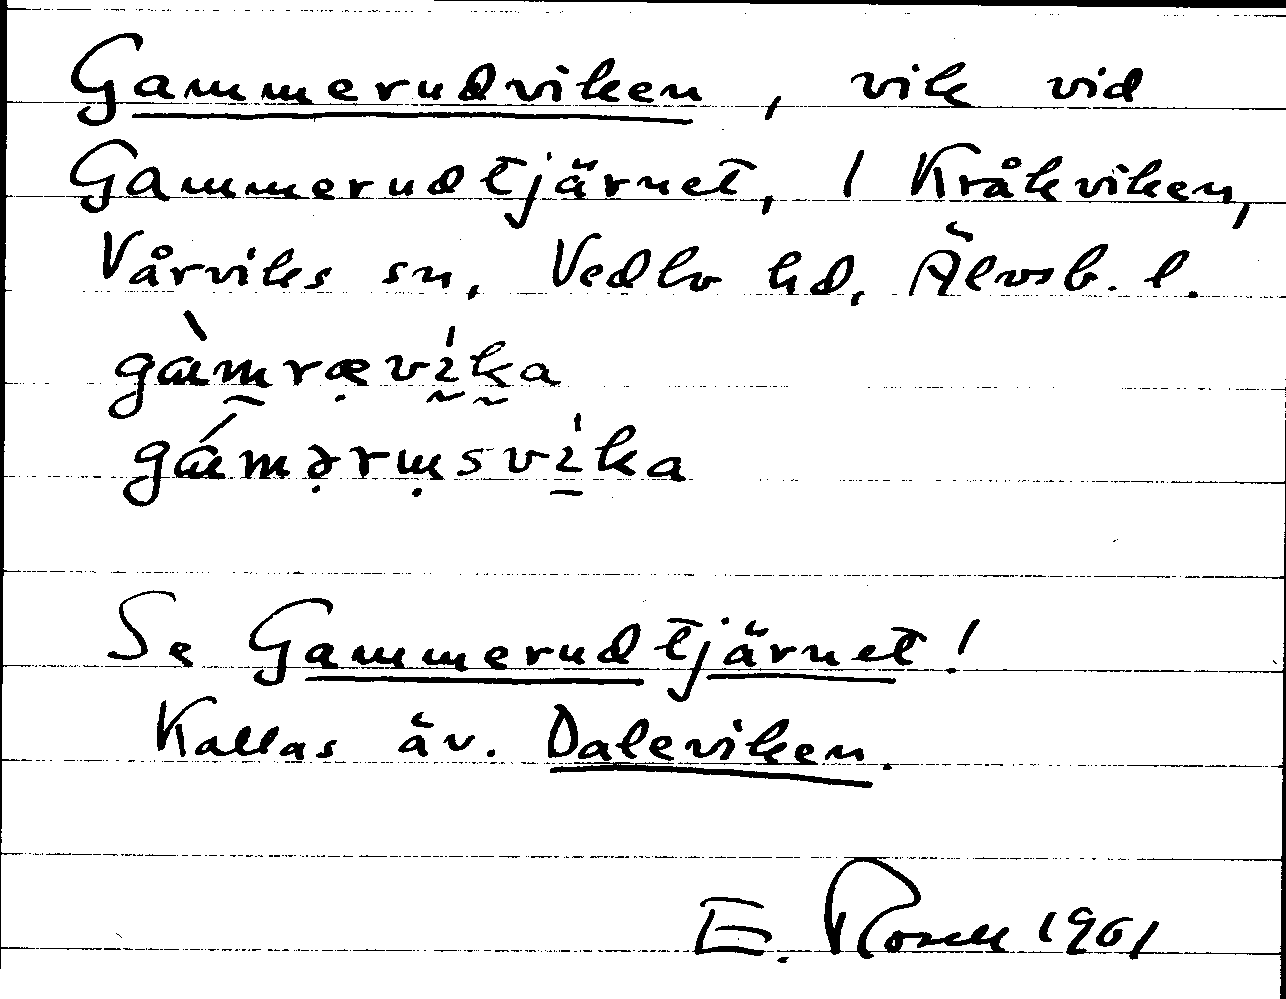 Gammerudviken, vik vid
Gammerudtjärnet, 1 Kråkviken,
Vårviks sn, Vedbo hd, Älvsb. l.
gàmrævika
gámərmsvika
Se Gammerudtjärnet!
Kallas äv. Daleviken.
E. Rosell 1961